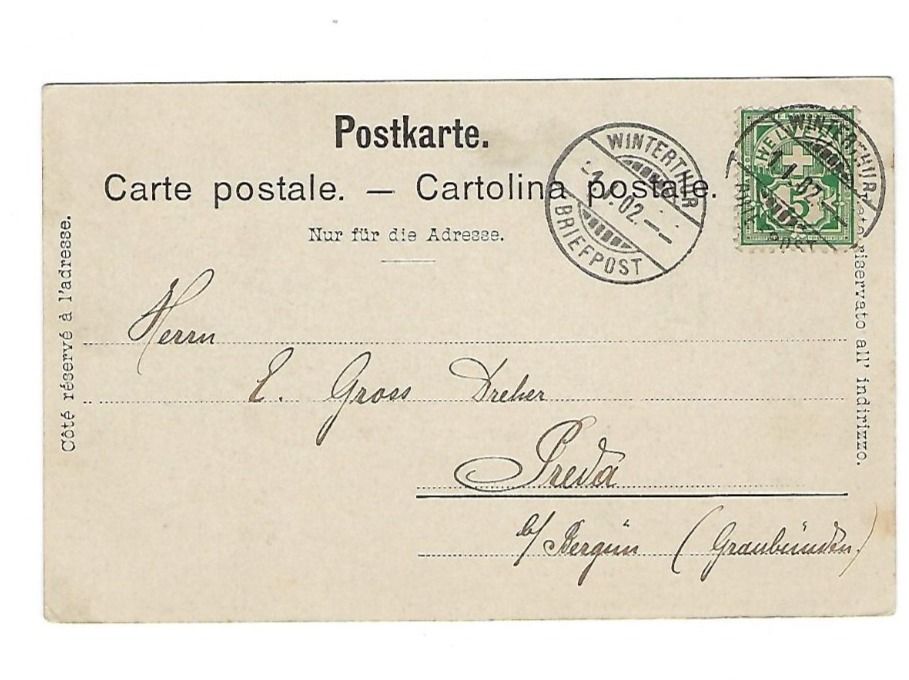 Postkarte.
Carte postale. — Cartolina postale.
Nur für die Adresse.
WINTERTHUR
1.02.
BRIEFPOST
HELVETIA
5
WINTERTHUR
Côté réservé à l'adresse.
riservato all' indirizzo.
Herrn
E. Gross Dreher
Preda
b/ Bergün (Graubünden)